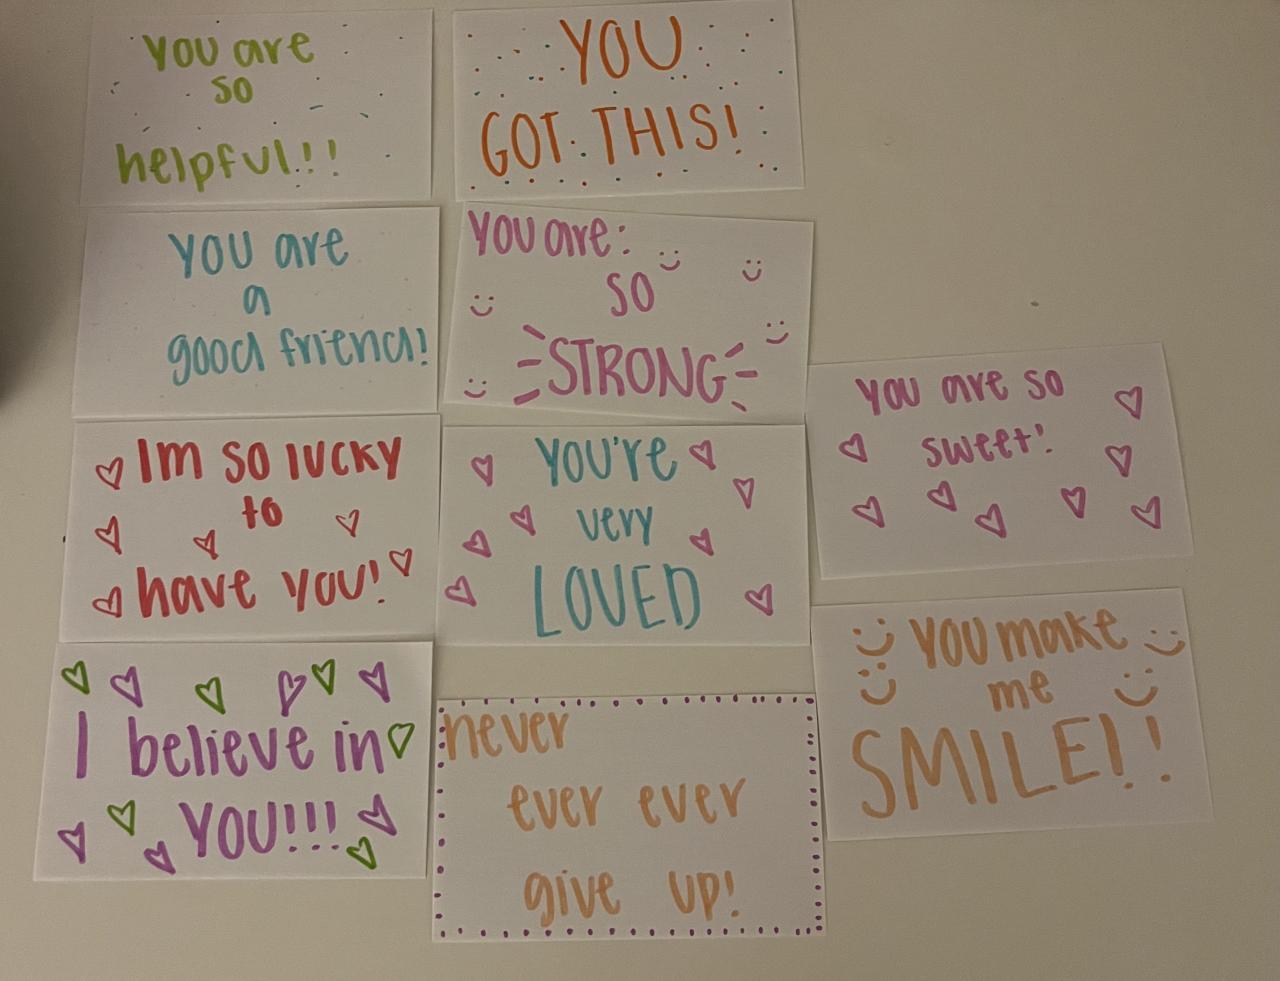 You are
so
helpful!!
YOU
GOT THIS!
you are
a
good friend!
You are:
SO
STRONG
Im so lucky
to
have you!
YOU're
very
LOVED
you are so
sweet!
I believe in
YOU!!!
never
ever ever
give up!
YOU make
me
SMILE!!